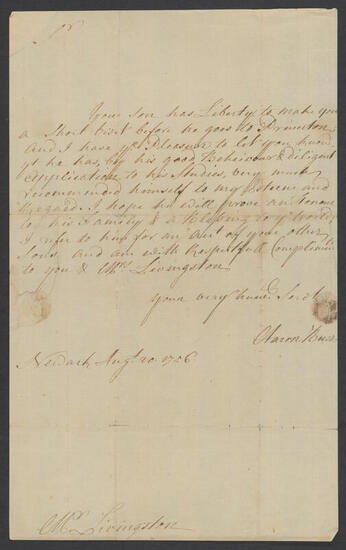 Sr
Your Son has Liberty to make you
a Short Visit before he goes to Princeton
And I have ye Pleasure to let you know
yt he has, by his good Behaviour & diligent
Application to his Studies, very much
recommended himself to my Esteem and
Regard. I hope he will prove an honour
to his Family & a Blessing to ye World
I refer to him for an acct of your other
Sons and am with Respectfull Complimts
to you & Mrs Livingston
your very hume Servt
Aaron Burr
Newark, Augt 20. 1756
Mr Livingston